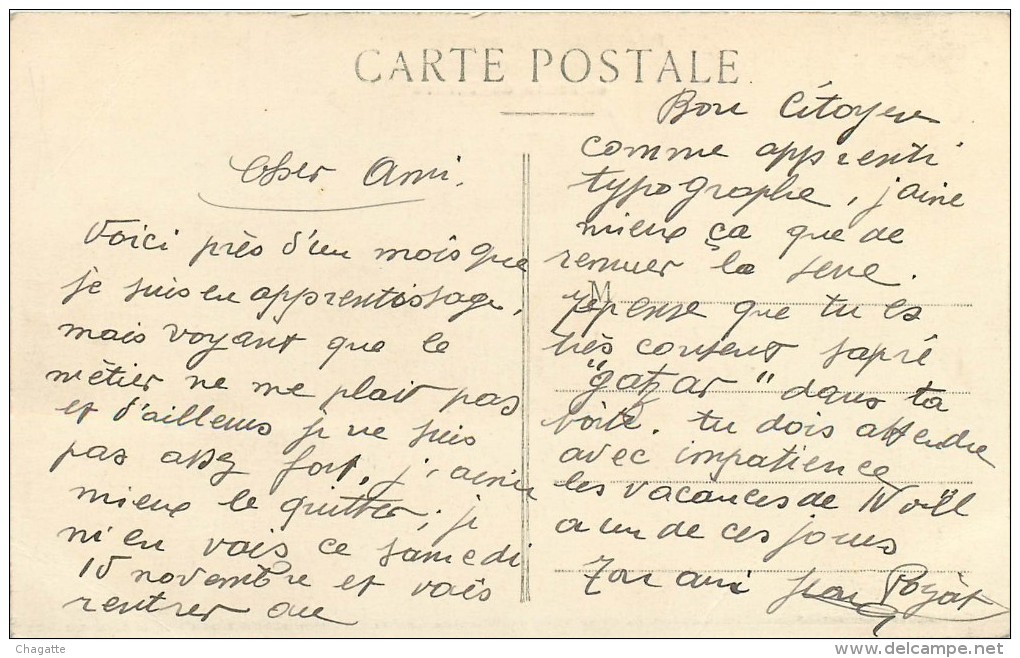 CARTE POSTALE
Cher Ami.
Voici près d'un mois que
je suis en apprentissage,
mais voyant que le
métier ne me plait pas
et d'ailleurs je ne suis
pas assez fort, j'aime
mieux le quitter; je
m'en vais ce samedi
15 novembre et vais
rentrer au
Bon Citoyen
comme apprenti
typographe, j'aime
mieux ça que de
remuer la
M
je pense que tu es
très content sapré
"gatzar" dans ta
boite. tu dois attendre
avec impatience
les vacances de Noël
a un de ces jours
Ton ami Jean
Chagatte
delcampe.net